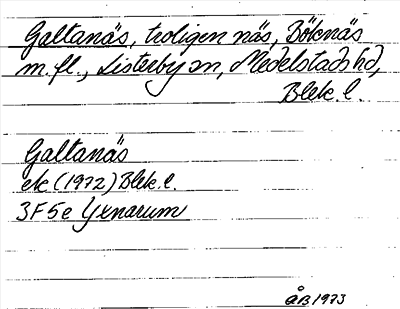 Galtanäs, troligen näs, Böknäs
m.fl., Listerby sn, Medelstads hd,
Blek. l.
Galtanäs
ek (1972) Blek. l.
3F5e Yxnarum
ÅB 1973